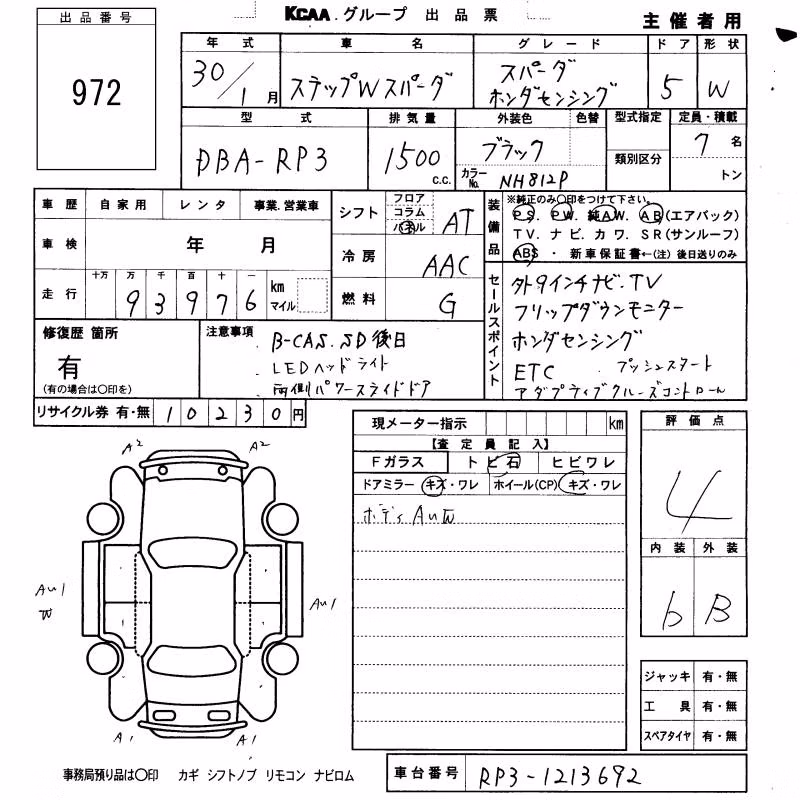 KCAA.グループ 出品票
主催者用
出品番号
972
年式 車名 グレード ドア 形状
30/1月 ステップWスパーダ スパーダ ホンダセンシング 5 W
型式 排気量 外装色 色替 型式指定 定員・積載
DBA-RP3 1500 c.c. ブラック 7名
カラーNo. NH812P 類別区分 トン
車歴 自家用 レンタ 事業.営業車
車検 年 月
走行 十万 万 千 百 十 一 km マイル
93976
シフト フロア コラム パネル AT
冷房 AAC
燃料 G
装備品 ※純正のみ○印をつけて下さい。
PS. PW. 純AW. AB(エアバック)
TV. ナビ. カワ. SR(サンルーフ)
ABS ・ 新車保証書←(注)後日送りのみ
セールスポイント
外9インチナビ.TV
フリップダウンモニター
ホンダセンシング
ETC プッシュスタート
アダプティブクルーズコントロール
修復歴 箇所
有
(有の場合は○印を)
注意事項
B-CAS.SD後日
LEDヘッドライト
両側パワースライドドア
リサイクル券 有・無 10230円
現メーター指示 km
【査定員記入】
Fガラス トビ石 ヒビワレ
ドアミラー キズ・ワレ ホイール(CP) キズ・ワレ
ボディAuW
評価点
4
内装 外装
b B
ジャッキ 有・無
工具 有・無
スペアタイヤ 有・無
A2 A2
Au1 W
Au1
A1 A1
事務局預り品は○印 カギ シフトノブ リモコン ナビロム
車台番号 RP3-1213692